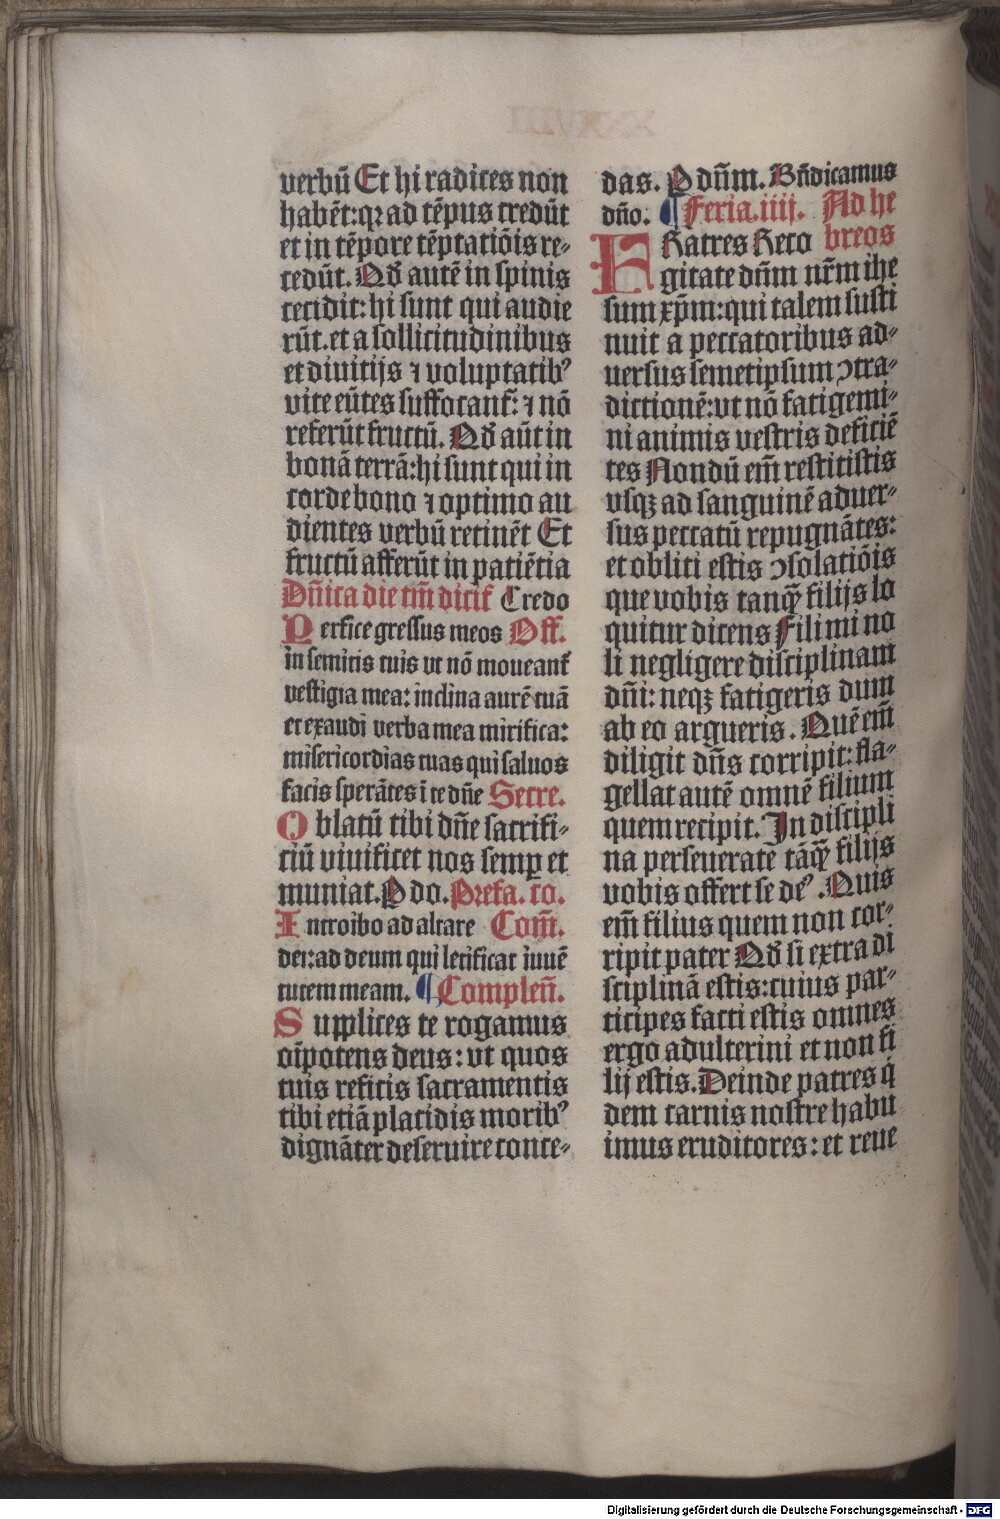 verbū Et hi radices non
habēt:qꝛ ad tēpus credūt
et in tēpore tēptatiōis re-
cedūt. Qd̛ autē in spinis
cecidit: hi sunt qui audie
rūt. et a sollicitudinibus
et diuitijs ⁊ voluptatibꝰ
vite eūtes suffocant᷑: ⁊ nō
referūt fructū. Qd̛ aūt in
bonā terrā: hi sunt qui in
corde bono ⁊ optimo au
dientes verbū retinēt Et
fructū afferūt in patiētia
Dn̄ica die tm̄ dicit᷑ Credo
Perfice gressus meos Off.
in semitis tuis vt nō moueant᷑
vestigia mea: inclina aurē tuā
et exaudi verba mea mirifica:
misericordias tuas qui saluos
facis sperātes ī te dn̄e Secre.
Oblatū tibi dn̄e sacrifi-
ciū viuificet nos semꝑ et
muniat. P do. Prefa. co.
Introibo ad altare Com̄.
dei: ad deum qui letificat iuuē
tutem meam. ¶ Complen̄.
Supplices te rogamus
oīpotens deus: vt quos
tuis reficis sacramentis
tibi etiā placidis moribꝰ
dignāter deseruire conce-
das. P dn̄m. Bn̄dicamus
dn̄o. ¶ Feria.iiij. Ad he
FRatres Reco breos
gitate dn̄m nr̄m ihe
sum xp̄m: qui talem susti
nuit a peccatoribus ad-
uersus semetipsum ꝯtra-
dictionē: vt nō fatigemi-
ni animis vestris deficiē
tes Nondū em̄ restitistis
vsqꝫ ad sanguinē aduer-
sus peccatū repugnātes:
et obliti estis ꝯsolatiōis
que vobis tanqꝫ̄ filijs lo
quitur dicens Fili mi no
li negligere disciplinam
dn̄i: neqꝫ fatigeris dum
ab eo argueris. Quē em̄
diligit dn̄s corripit: fla-
gellat autē omnē filium
quem recipit. In discipli
na perseuerate tāqꝫ̄ filijs
vobis offert se deꝰ. Quis
em̄ filius quem non cor-
ripit pater Qd̛ si extra di
sciplinā estis: cuius par-
ticipes facti estis omnes
ergo adulterini et non fi
lij estis. Deinde patres q̇
dem carnis nostre habu
imus eruditores: et reue
Digitalisierung gefördert durch die Deutsche Forschungsgemeinschaft - DFG